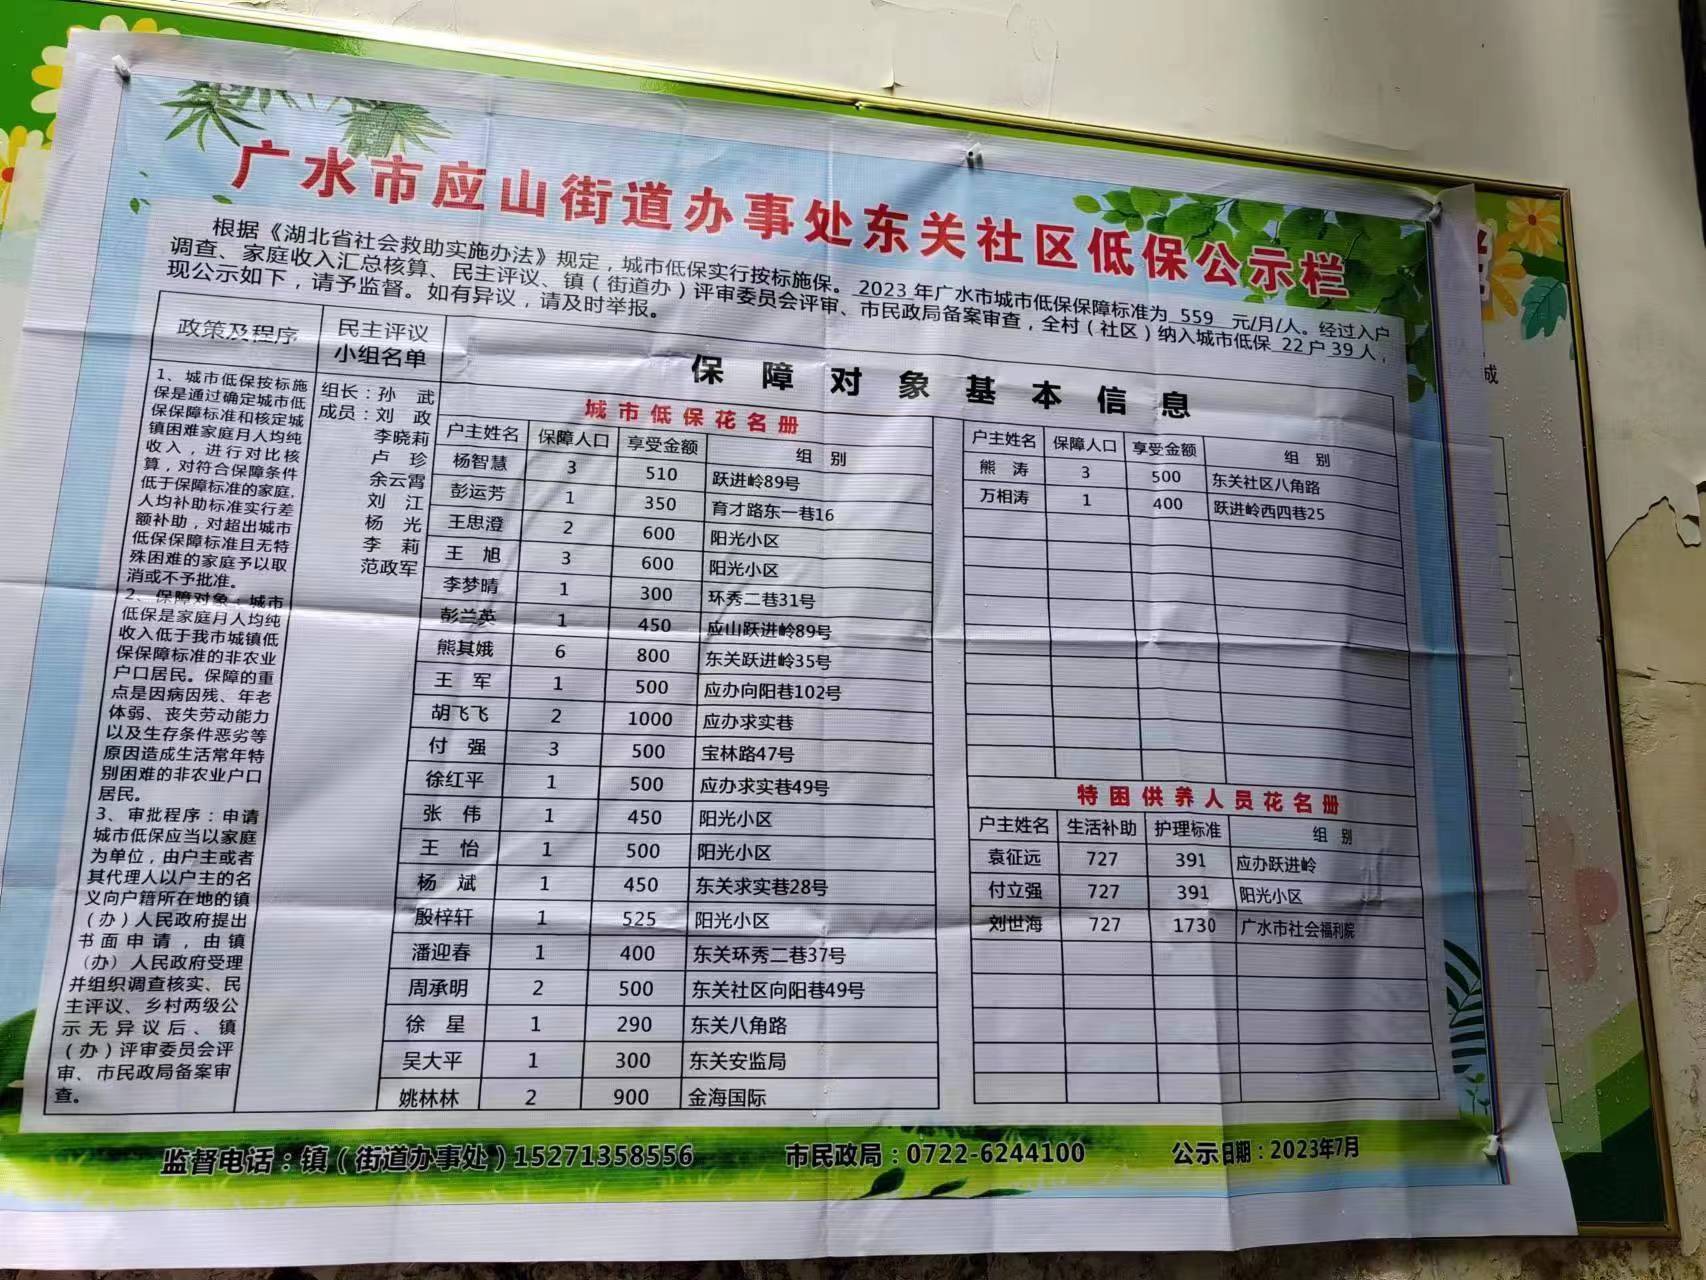 广水市应山街道办事处东关社区低保公示栏
根据《湖北省社会救助实施办法》规定，城市低保实行按标施保。2023年广水市城市低保保障标准为 559 元/月/人。经过入户
调查、家庭收入汇总核算、民主评议、镇（街道办）评审委员会评审、市民政局备案审查，全村（社区）纳入城市低保 22户39人，
现公示如下，请予监督。如有异议，请及时举报。
政策及程序
1、城市低保按标施
保是通过确定城市低
保保障标准和核定城
镇困难家庭月人均纯
收入，进行对比核
算，对符合保障条件
低于保障标准的家庭,
人均补助标准实行差
额补助，对超出城市
低保保障标准且无特
殊困难的家庭予以取
消或不予批准。
2、保障对象：城市
低保是家庭月人均纯
收入低于我市城镇低
保保障标准的非农业
户口居民。保障的重
点是因病因残、年老
体弱、丧失劳动能力
以及生存条件恶劣等
原因造成生活常年特
别困难的非农业户口
居民。
3、审批程序：申请
城市低保应当以家庭
为单位，由户主或者
其代理人以户主的名
义向户籍所在地的镇
（办）人民政府提出
书面申请，由镇
（办）人民政府受理
并组织调查核实、民
主评议、乡村两级公
示无异议后、镇
（办）评审委员会评
审、市民政局备案审
查。
民主评议
小组名单
组长：孙 武
成员：刘 政
李晓莉
卢 珍
余云霄
刘 江
杨 光
李 莉
范政军
保障对象基本信息
城市低保花名册
户主姓名 保障人口 享受金额 组 别
杨智慧 3 510 跃进岭89号
彭运芳 1 350 育才路东一巷16
王思澄 2 600 阳光小区
王 旭 3 600 阳光小区
李梦晴 1 300 环秀二巷31号
彭兰英 1 450 应山跃进岭89号
熊其娥 6 800 东关跃进岭35号
王 军 1 500 应办向阳巷102号
胡飞飞 2 1000 应办求实巷
付 强 3 500 宝林路47号
徐红平 1 500 应办求实巷49号
张 伟 1 450 阳光小区
王 怡 1 500 阳光小区
杨 斌 1 450 东关求实巷28号
殷梓轩 1 525 阳光小区
潘迎春 1 400 东关环秀二巷37号
周承明 2 500 东关社区向阳巷49号
徐 星 1 290 东关八角路
吴大平 1 300 东关安监局
姚林林 2 900 金海国际
户主姓名 保障人口 享受金额 组 别
熊 涛 3 500 东关社区八角路
万相涛 1 400 跃进岭西四巷25
特困供养人员花名册
户主姓名 生活补助 护理标准 组 别
袁征远 727 391 应办跃进岭
付立强 727 391 阳光小区
刘世海 727 1730 广水市社会福利院
监督电话：镇（街道办事处）15271358556 市民政局：0722-6244100 公示日期：2023年7月
成